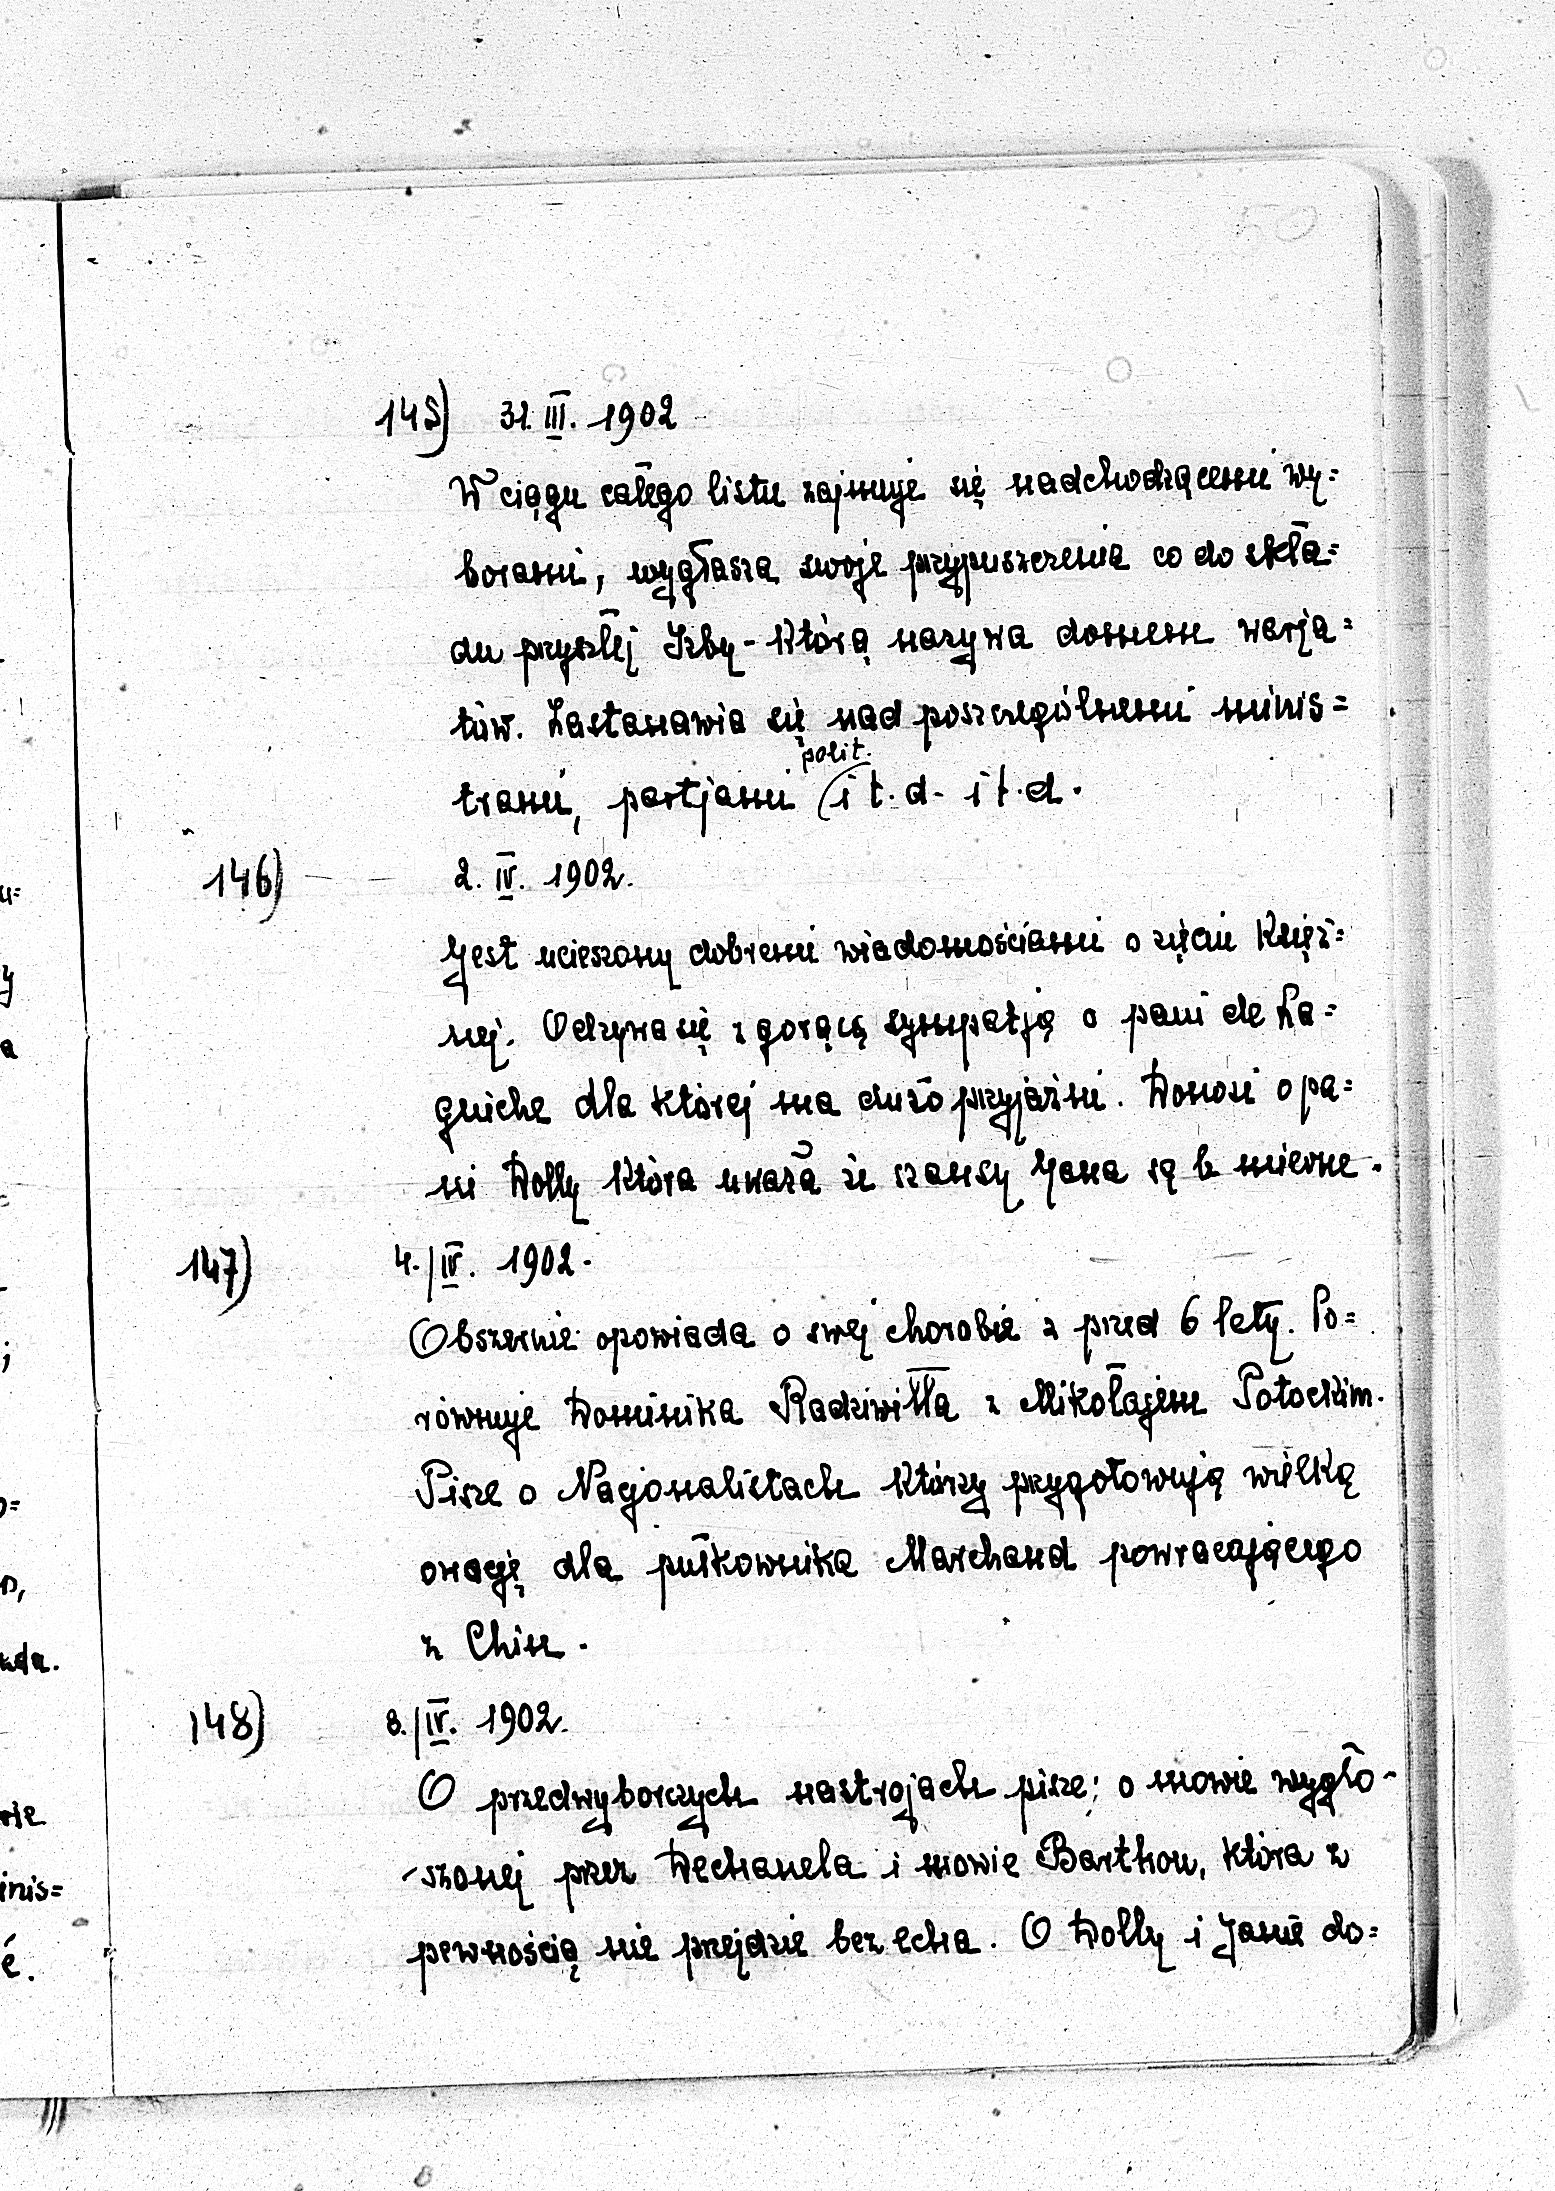 50
145) 31. III. 1902
W ciągu całego listu zajmuje się nadchodzącemi wy=
borami, wygłasza swoje przypuszczenia co do skła=
du przyszłej Izby - którą nazywa domem warja=
tów. Zastanawia się nad poszczególnemi minis=
polit.
trami, partjami (i t. d. i t. d.
146) 2. IV. 1902.
Jest ucieszony dobremi wiadomościami o zięciu Księż=
nej. Odzywa się z gorącą sympatją o pani de La=
guiche dla której ma dużo przyjaźni. Donosi o pa=
ni Dolly która uważa że szansy Jana są b mierne.
147) 4./IV. 1902.
Obszernie opowiada o swej chorobie z przed 6 laty. Po=
równuje Dominika Radziwiłła z Mikołajem Potockim.
Pisze o Nacjonalistach którzy przygotowują wielką
owację dla pułkownika Marchand powracającego
z Chin.
148) 8./IV. 1902.
O przedwyborczych nastrojach pisze; o mowie wygło-
-szonej przez Dechanela i mowie Barthou, która z
pewnością nie przejdzie bez echa. O Dolly i Janie do=